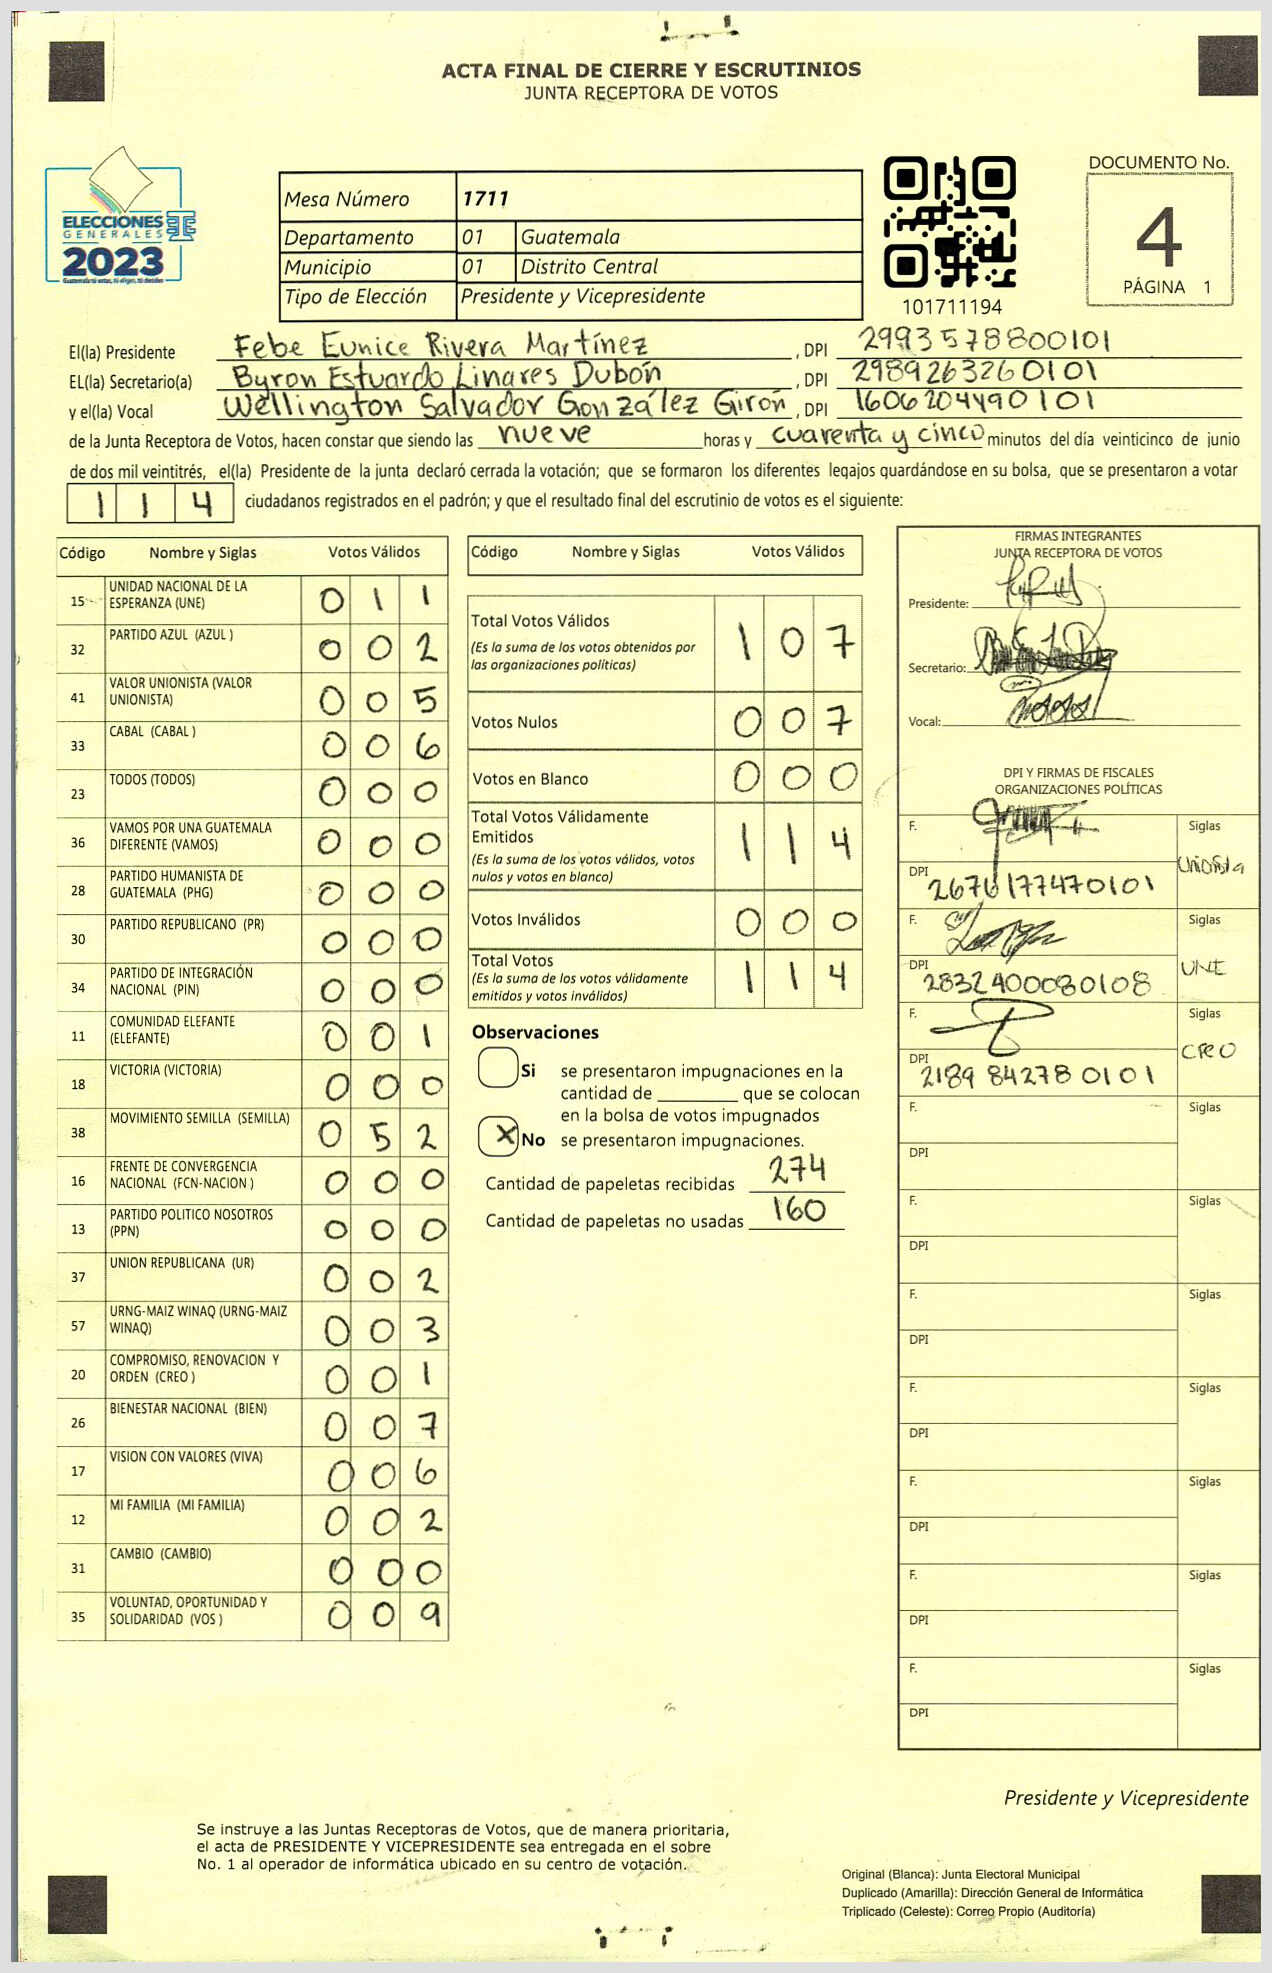 ACTA FINAL DE CIERRE Y ESCRUTINIOS
JUNTA RECEPTORA DE VOTOS
ELECCIONES
GENERALES
2023
Mesa Número 1711
Departamento 01 Guatemala
Municipio 01 Distrito Central
Tipo de Elección Presidente y Vicepresidente
101711194
DOCUMENTO No.
4
PÁGINA 1
El(la) Presidente Febe Eunice Rivera Martínez , DPI 2993578800101
EL(la) Secretario(a) Byron Estuardo Linares Dubón , DPI 2989263260101
y el(la) Vocal Wellington Salvador González Girón , DPI 1606204490101
de la Junta Receptora de Votos, hacen constar que siendo las nueve horas y cuarenta y cinco minutos del día veinticinco de junio
de dos mil veintitrés, el(la) Presidente de la junta declaró cerrada la votación; que se formaron los diferentes legajos guardándose en su bolsa, que se presentaron a votar
114 ciudadanos registrados en el padrón; y que el resultado final del escrutinio de votos es el siguiente:
Código Nombre y Siglas Votos Válidos
15 UNIDAD NACIONAL DE LA ESPERANZA (UNE) 0 1 1
32 PARTIDO AZUL (AZUL ) 0 0 2
41 VALOR UNIONISTA (VALOR UNIONISTA) 0 0 5
33 CABAL (CABAL ) 0 0 6
23 TODOS (TODOS) 0 0 0
36 VAMOS POR UNA GUATEMALA DIFERENTE (VAMOS) 0 0 0
28 PARTIDO HUMANISTA DE GUATEMALA (PHG) 0 0 0
30 PARTIDO REPUBLICANO (PR) 0 0 0
34 PARTIDO DE INTEGRACIÓN NACIONAL (PIN) 0 0 0
11 COMUNIDAD ELEFANTE (ELEFANTE) 0 0 1
18 VICTORIA (VICTORIA) 0 0 0
38 MOVIMIENTO SEMILLA (SEMILLA) 0 5 2
16 FRENTE DE CONVERGENCIA NACIONAL (FCN-NACION ) 0 0 0
13 PARTIDO POLITICO NOSOTROS (PPN) 0 0 0
37 UNION REPUBLICANA (UR) 0 0 2
57 URNG-MAIZ WINAQ (URNG-MAIZ WINAQ) 0 0 3
20 COMPROMISO, RENOVACION Y ORDEN (CREO ) 0 0 1
26 BIENESTAR NACIONAL (BIEN) 0 0 7
17 VISION CON VALORES (VIVA) 0 0 6
12 MI FAMILIA (MI FAMILIA) 0 0 2
31 CAMBIO (CAMBIO) 0 0 0
35 VOLUNTAD, OPORTUNIDAD Y SOLIDARIDAD (VOS ) 0 0 9
Código Nombre y Siglas Votos Válidos
Total Votos Válidos 1 0 7
(Es la suma de los votos obtenidos por
las organizaciones políticas)
Votos Nulos 0 0 7
Votos en Blanco 0 0 0
Total Votos Válidamente
Emitidos 1 1 4
(Es la suma de los votos válidos, votos
nulos y votos en blanco)
Votos Inválidos 0 0 0
Total Votos 1 1 4
(Es la suma de los votos válidamente
emitidos y votos inválidos)
Observaciones
Si se presentaron impugnaciones en la
cantidad de ________ que se colocan
en la bolsa de votos impugnados
X No se presentaron impugnaciones.
Cantidad de papeletas recibidas 274
Cantidad de papeletas no usadas 160
FIRMAS INTEGRANTES
JUNTA RECEPTORA DE VOTOS
Presidente:
Secretario:
Vocal:
DPI Y FIRMAS DE FISCALES
ORGANIZACIONES POLÍTICAS
F. Siglas
Unionista
DPI 2676177470101
F. Siglas
UNE
DPI 2832400080108
F. Siglas
CREO
DPI 2189842780101
F. Siglas
DPI
F. Siglas
DPI
F. Siglas
DPI
F. Siglas
DPI
F. Siglas
DPI
F. Siglas
DPI
F. Siglas
DPI
Presidente y Vicepresidente
Se instruye a las Juntas Receptoras de Votos, que de manera prioritaria,
el acta de PRESIDENTE Y VICEPRESIDENTE sea entregada en el sobre
No. 1 al operador de informática ubicado en su centro de votación.
Original (Blanca): Junta Electoral Municipal
Duplicado (Amarilla): Dirección General de Informática
Triplicado (Celeste): Correo Propio (Auditoría)